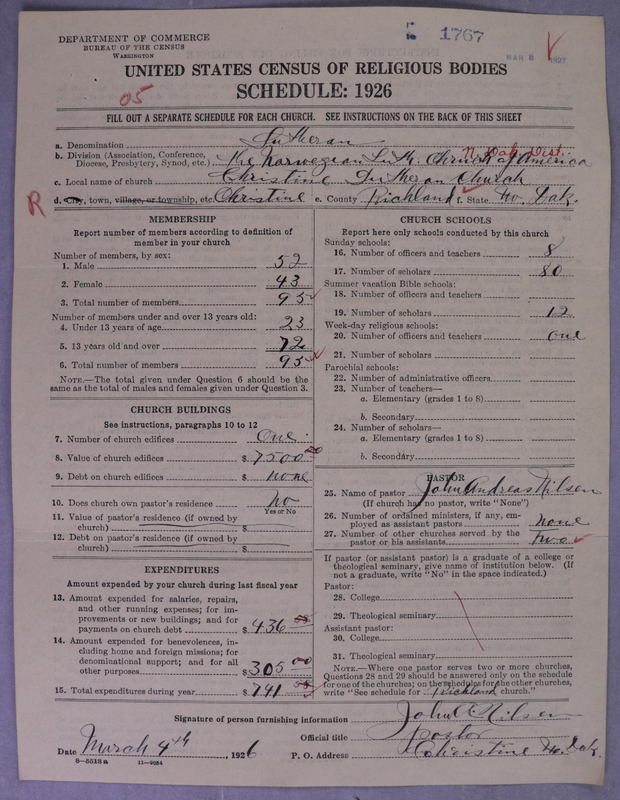 DEPARTMENT OF COMMERCE
BUREAU OF THE CENSUS
WASHINGTON
1767
MAR 8 1927
UNITED STATES CENSUS OF RELIGIOUS BODIES
SCHEDULE: 1926
05
FILL OUT A SEPARATE SCHEDULE FOR EACH CHURCH. SEE INSTRUCTIONS ON THE BACK OF THIS SHEET
a. Denomination Lutheran
N. Dak. Dist.
b. Division (Association, Conference, Diocese, Presbytery, Synod, etc.) The Norwegian Luth. Church of America
c. Local name of church Christine Lutheran Church
R
d. City, town, village, or township, etc. Christine e. County Richland f. State No. Dak.
MEMBERSHIP
Report number of members according to definition of
member in your church
Number of members, by sex:
1. Male 52
2. Female 43
3. Total number of members 95
Number of members under and over 13 years old:
4. Under 13 years of age 23
5. 13 years old and over 72
6. Total number of members 95
NOTE.—The total given under Question 6 should be
same as the total of males and females given under Question 3.
CHURCH BUILDINGS
See instructions, paragraphs 10 to 12
7. Number of church edifices One
8. Value of church edifices $ 7500 00
9. Debt on church edifices $ none
10. Does church own pastor's residence No
Yes or No
11. Value of pastor's residence (if owned by
church) $
12. Debt on pastor's residence (if owned by
church) $
EXPENDITURES
Amount expended by your church during last fiscal year
13. Amount expended for salaries, repairs,
and other running expenses; for im-
provements or new buildings; and for
payments on church debt $ 436
14. Amount expended for benevolences, in-
cluding home and foreign missions; for
denominational support; and for all
other purposes $ 305 00
15. Total expenditures during year $ 741
CHURCH SCHOOLS
Report here only schools conducted by this church
Sunday schools:
16. Number of officers and teachers 8
17. Number of scholars 80
Summer vacation Bible schools:
18. Number of officers and teachers
19. Number of scholars 12
Week-day religious schools:
20. Number of officers and teachers one
21. Number of scholars
Parochial schools:
22. Number of administrative officers
23. Number of teachers—
a. Elementary (grades 1 to 8)
b. Secondary
24. Number of scholars—
a. Elementary (grades 1 to 8)
b. Secondary
PASTOR
25. Name of pastor John Andreas Nilsen
(If church has no pastor, write "None")
26. Number of ordained ministers, if any, em-
ployed as assistant pastors none
27. Number of other churches served by the
pastor or his assistants two
If pastor (or assistant pastor) is a graduate of a college or
theological seminary, give name of institution below. (If
not a graduate, write "No" in the space indicated.)
Pastor:
28. College
29. Theological seminary
Assistant pastor:
30. College
31. Theological seminary
NOTE.—Where one pastor serves two or more churches,
Questions 28 and 29 should be answered only on the schedule
for one of the churches; on the schedules for the other churches,
write "See schedule for Richland church."
Signature of person furnishing information John A Nilsen
Official title Pastor
Date March 4th, 1926 P. O. Address Christine No. Dak.
8—5518 a 11—9684